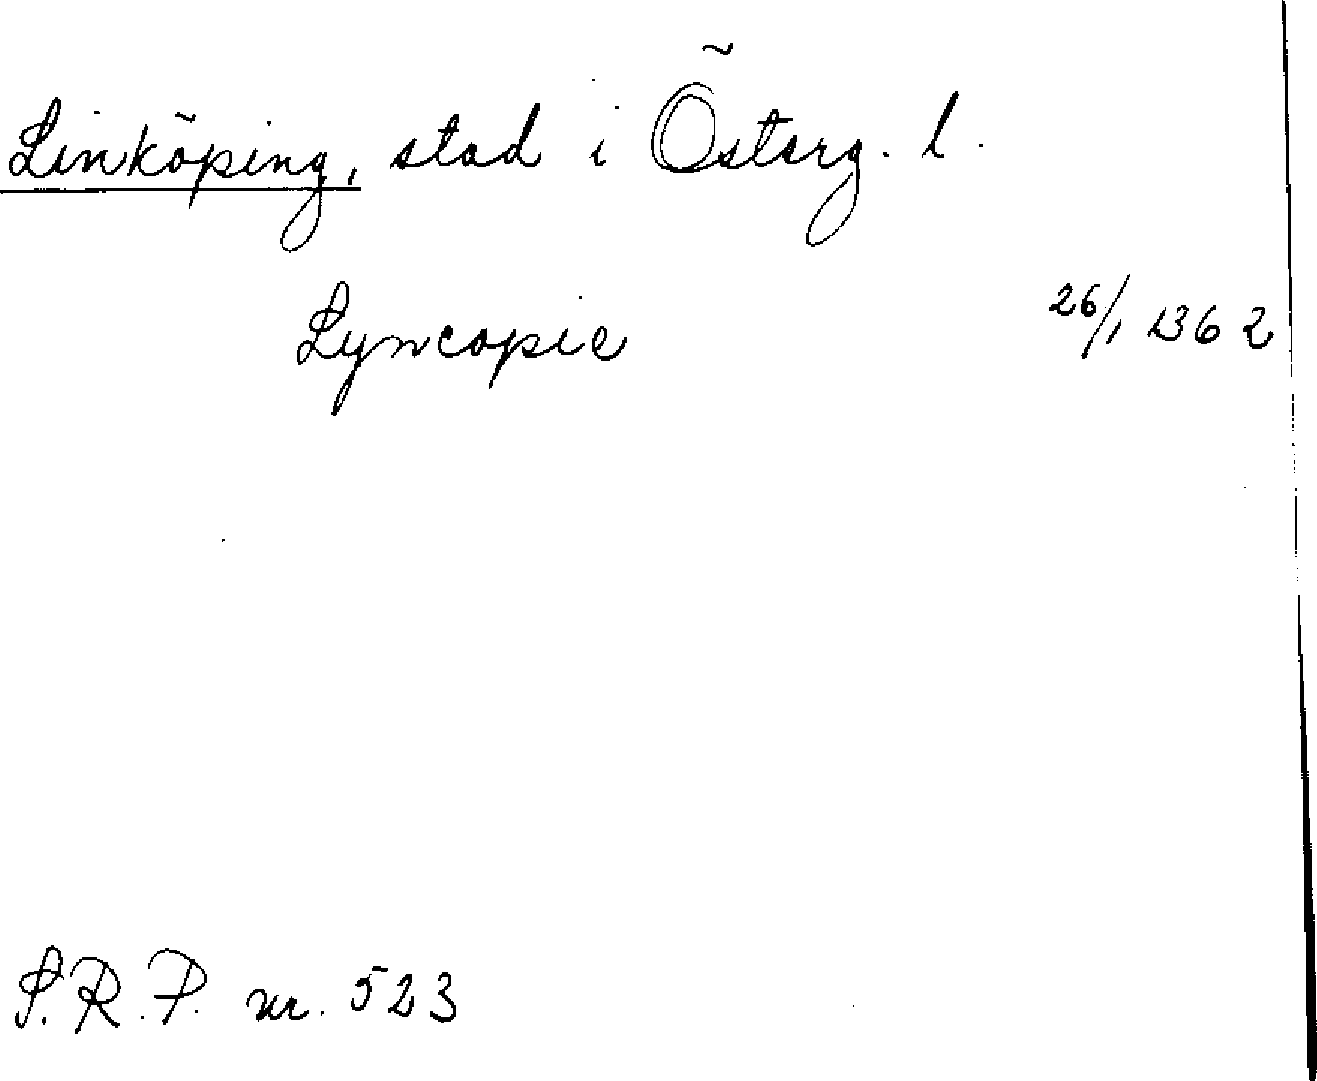 Linköping, stad i Österg. l.
Lyncopie 26/1 1362
S.R.P. nr. 523